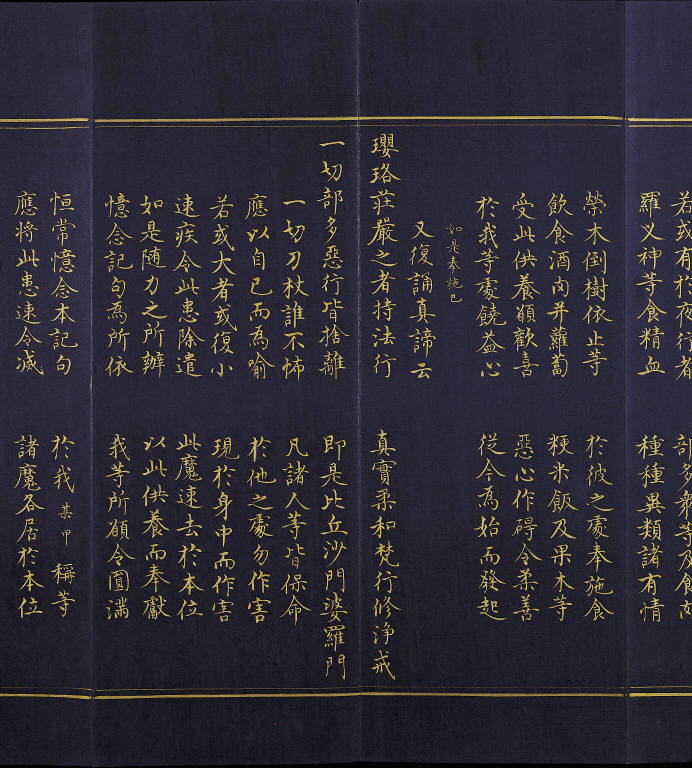 若或有於夜行者 部多眾等及食肉
羅义神等食精血 種種異類諸有情
榮木倒樹依止等 於彼之處奉施食
飲食酒肉并蘿蔔 粳米飯及果木等
受此供養願歡喜 惡心作碍令柔善
於我等處饒益心 從今為始而發起
如是奉施已
又復誦真諦云
瓔珞莊嚴之者持法行 真實柔和梵行修浄戒
一切部多惡行皆捨離 即是比丘沙門婆羅門
一切刀杖誰不怖 凡諸人等皆保命
應以自已而為喻 於他之處勿作害
若或大者或復小 現於身中而作害
速疾令此患除遣 此魔速去於本位
如是随力之所辦 以此供養而奉獻
憶念記句為所依 我等所願令圓滿
恒常憶念本記句 於我某甲稱等
應將此患速令滅 諸魔各居於本位